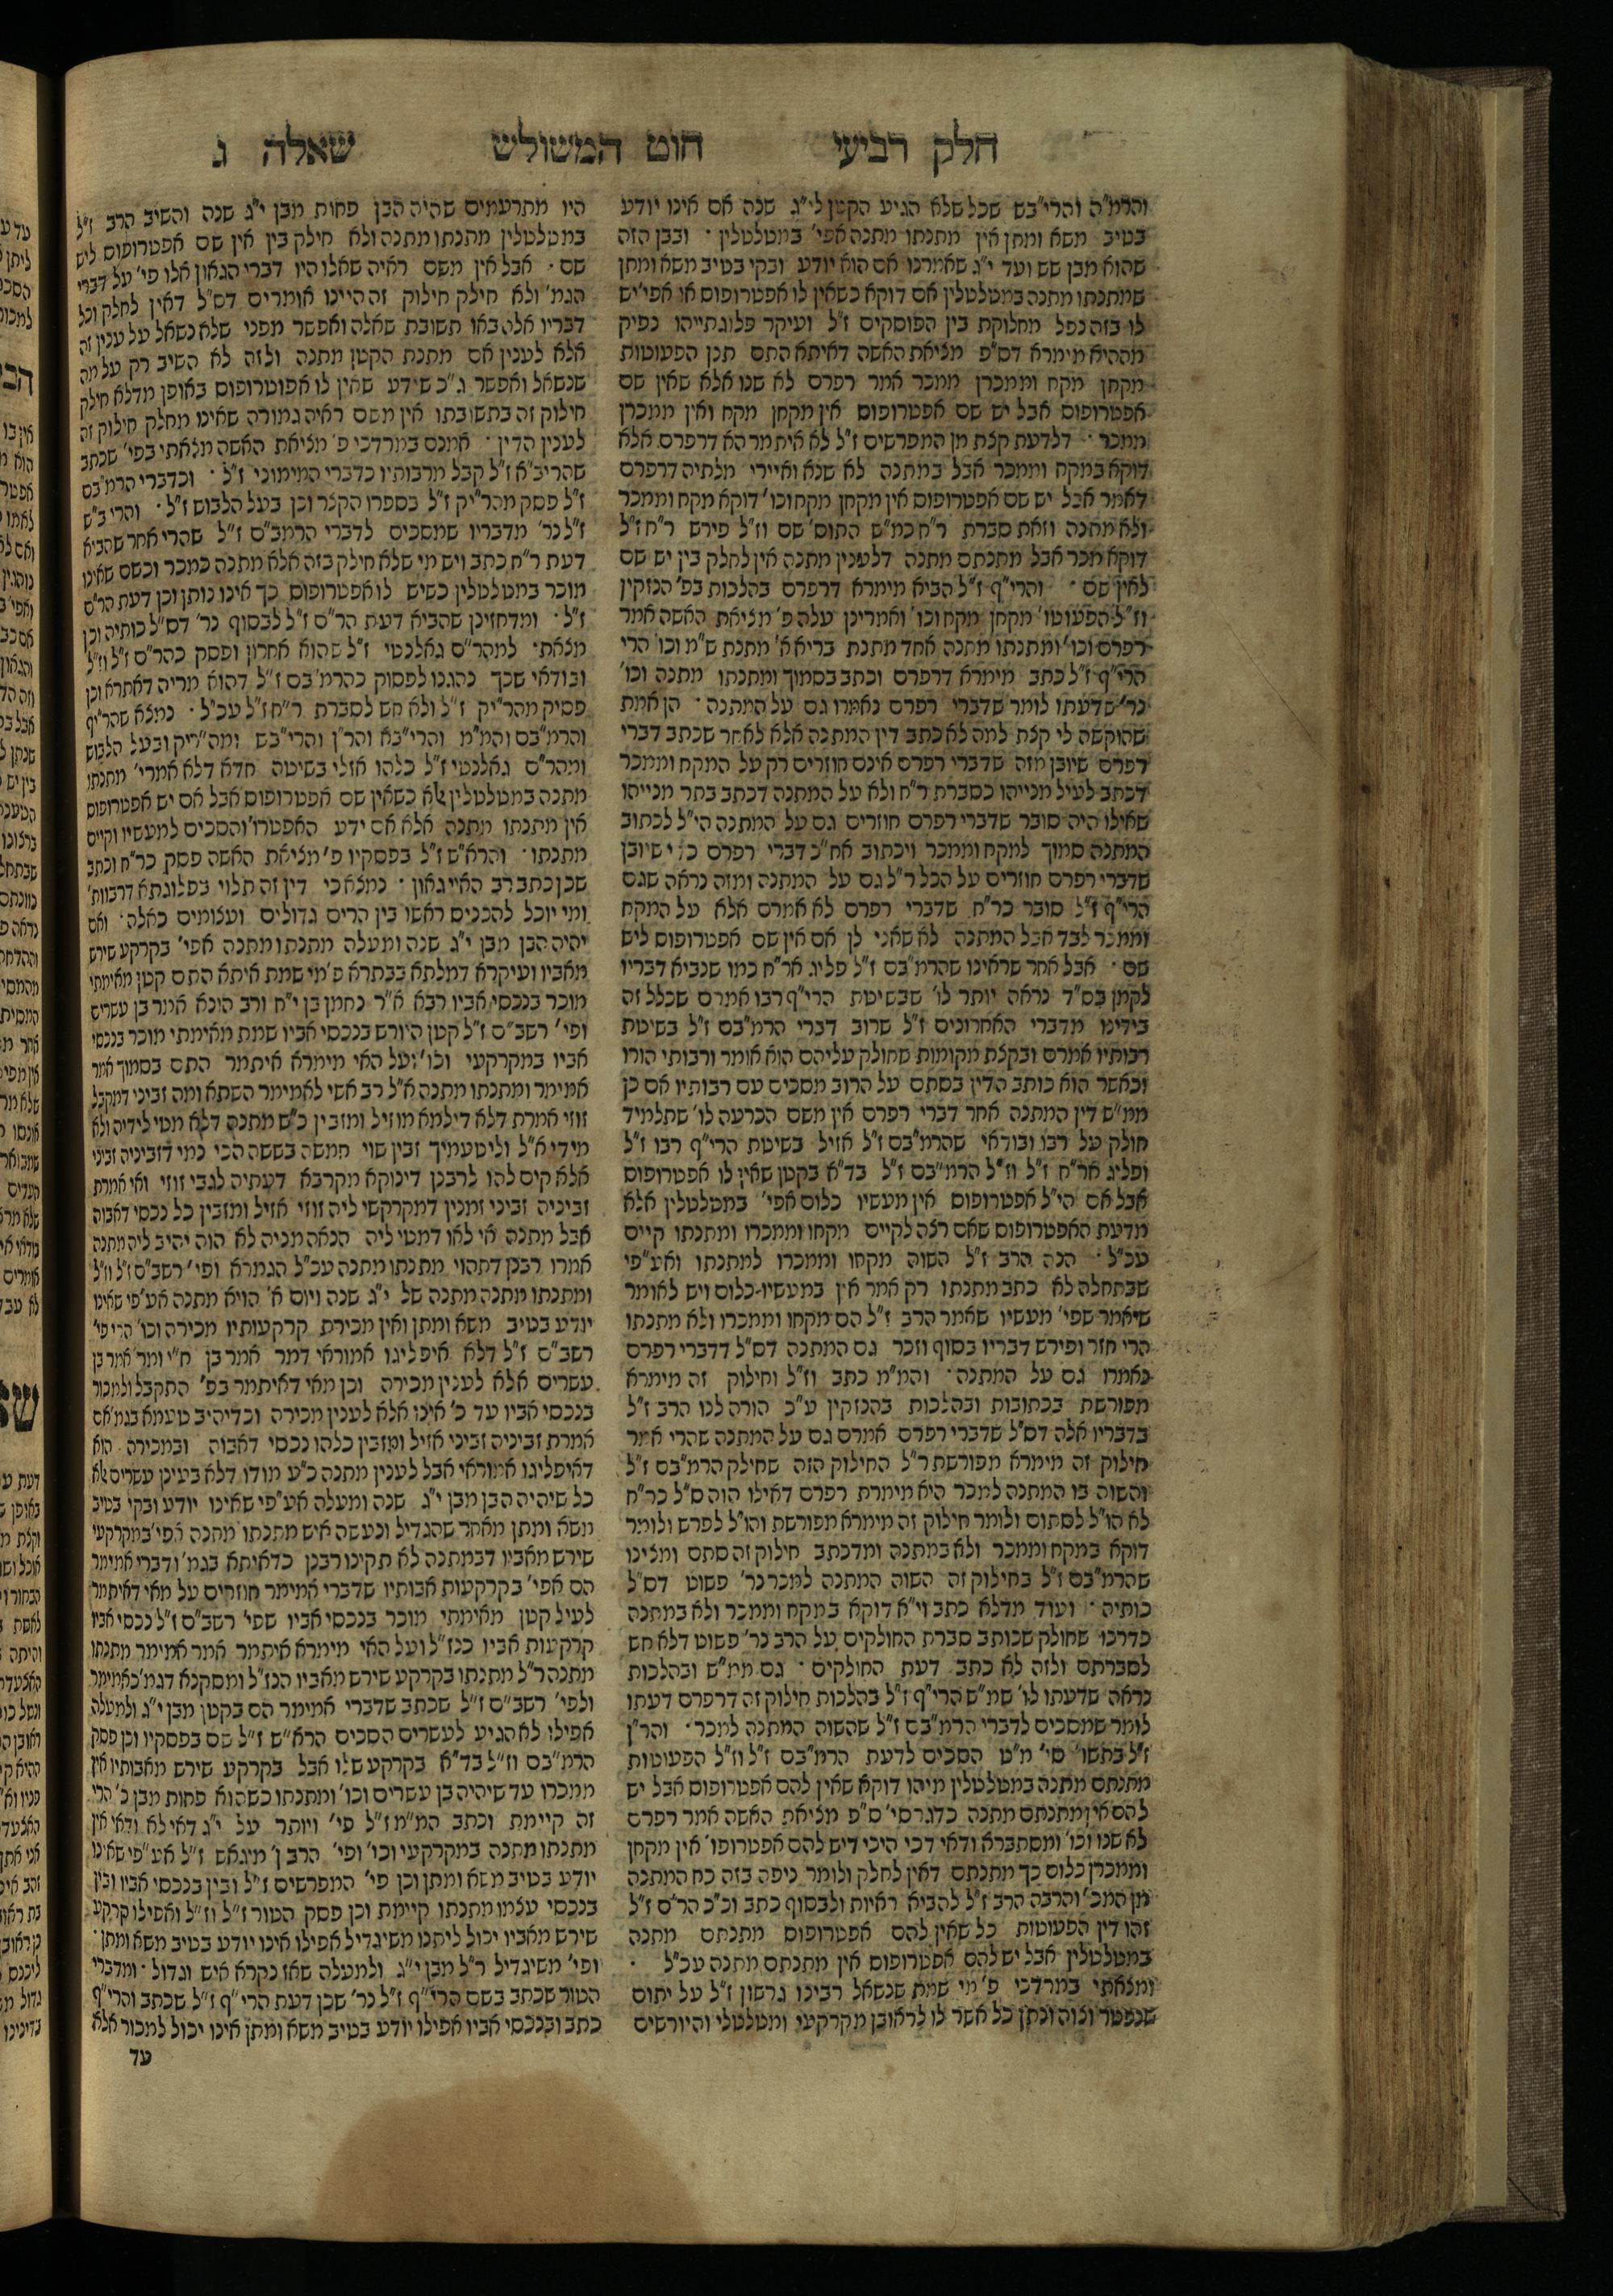 חלק רביעי חוט המשולש שאלה ג
והרמ"ה והרי"בש שכל שלא הגיע הקטן לי"ג שנה אם אינו יודע
בטיב משא ומתן אין מתנתו מתנה אפי' במטלטלין · ובבן הזה
שהוא מבן שש ועד י"ג שאמרנו אם הוא יודע ובקי בטיב משא ומתן
שמתנתו מתנה במטלטלין אם דוקא כשאין לו אפטרופוס או אפי' יש
לו בזה נפל מחלוקת בין הפוסקים ז"ל ועיקר פלוגתייהו נפיק
מההיא מימרא דס"פ מציאת האשה דאיתא התם תנן הפעוטות
מקחן מקח וממכרן ממכר אמר רפרם לא שנו אלא שאין שם
אפטרופוס אבל יש שם אפטרופוס אין מקחן מקח ואין ממכרן
ממכר · דלדעת קצת מן המפרשים ז"ל לא איתמר הא דרפרם אלא
דוקא במקח וממכר אבל במתנה לא שנא ואיירי מלתיה דרפרם
דאמר אבל יש שם אפטרופוס אין מקחן מקח וכו' דוקא מקח וממכר
ולא מתנה וזאת סברת ר"ח כמ"ש התוס' שם וז"ל פירש ר"ח ז"ל
דוקא מכר אבל מתנתם מתנה דלענין מתנה אין לחלק בין יש שם
לאין שם · והרי"ף ז"ל הביא מימרא דרפרם בהלכות בפ' הנזקין
וז"ל הפעוטו' מקחן מקח וכו' ואמרינן עלה פ' מציאת האשה אמר
רפרם וכו' ומתנתו מתנה אחד מתנת בריא א' מתנת ש"מ וכו' הרי
הרי"ף ז"ל כתב מימרא דרפרם וכתב בסמוך ומתנתו מתנה וכו'
נר' שדעתו לומר שדברי רפרם נאמרו גם על המתנה · הן אמת
שהוקשה לי קצת למה לא כתב דין המתנה אלא לאחר שכתב דברי
רפרם שיובן מזה שדברי רפרם אינם חוזרים רק על המקח וממכר
דכתב לעיל מנייהו כסברת ר"ח ולא על המתנה דכתב בתר מנייהו
שאילו היה סובר שדברי רפרם חוזרים גם על המתנה הי"ל לכתוב
המתנה סמוך למקח וממכר ויכתוב אח"כ דברי רפרם כדי שיובן
שדברי רפרם חוזרים על הכל ר"ל גם על המתנה ומזה נראה שגם
הרי"ף ז"ל סובר כר"ח שדברי רפרם לא אמרם אלא על המקח
וממכר לבד אבל המתנה לא שאני לן אם אין שם אפטרופוס ליש
שם · אבל אחר שראינו שהרמ"בם ז"ל פליג אר"ח כמו שנביא דבריו
לקמן בס"ד נראה יותר לו' שבשיטת הרי"ף רבו אמרם שכלל זה
בידינו מדברי האחרונים ז"ל שרוב דברי הרמ"בם ז"ל בשיטת
רבותיו אמרם ובקצת מקומות שחולק עליהם הוא אומר ורבותי הורו
וכאשר הוא כותב הדין בסתם על הרוב מסכים עם רבותיו אם כן
ממ"ש דין המתנה אחר דברי רפרם אין משם הכרעה לו' שתלמיד
חולק על רבו ובודאי שהרמ"בם ז"ל אזיל בשיטת הרי"ף רבו ז"ל
ופליג אר"ח ז"ל וז"ל הרמ"בם ז"ל בד"א בקטן שאין לו אפטרופוס
אבל אם הי"ל אפטרופוס אין מעשיו כלום אפי' במטלטלין אלא
מדעת האפטרופוס שאם רצה לקיים מקחו וממכרו ומתנתו קיים
עכ"ל · הנה הרב ז"ל השוה מקחו וממכרו למתנתו ואע"פי
שבתחלה לא כתב מתנתו רק אמר אין במעשיו כלום ויש לאומר
שיאמר שפי' מעשיו שאמר הרב ז"ל הם מקחו וממכרו ולא מתנתו
הרי חזר ופירש דבריו בסוף וזכר גם המתנה דס"ל דדברי רפרם
נאמרו גם על המתנה · והמ"מ כתב וז"ל וחילוק זה מימרא
מפורשת בכתובות ובהלכות בהנזקין ע"כ הורה לנו הרב ז"ל
בדבריו אלה דס"ל שדברי רפרם אמרם גם על המתנה שהרי אמר
חילוק זה מימרא מפורשת ר"ל החילוק הזה שחילק הרמ"בם ז"ל
והשוה בו המתנה למכר היא מימרת רפרם דאילו הוה ס"ל כר"ח
לא הו"ל לסתום ולומר חילוק זה מימרא מפורשת והו"ל לפרש ולומר
דוקא במקח וממכר ולא במתנה ומדכתב חילוק זה סתם ומצינו
שהרמ"בם ז"ל בחילוק זה השוה המתנה למכר נר' פשוט דס"ל
כותיה · ועוד מדלא כתב וי"א דוקא במקח וממכר ולא במתנה
כדרכו שחולק שכותב סברת החולקים על הרב נר' פשוט דלא חש
לסברתם ולזה לא כתב דעת החולקים · גם ממ"ש ובהלכות
נראה שדעתו לו' שמ"ש הרי"ף ז"ל בהלכות חילוק זה דרפרם דעתו
לומר שמסכים לדברי הרמ"בם ז"ל שהשוה המתנה למכר · והר"ן
ז"ל בתשו' סי' מ"ט הסכים לדעת הרמ"בם ז"ל וז"ל הפעוטות
מתנתם מתנה במטלטלין מיהו דוקא שאין להם אפטרופוס אבל יש
להם אין מתנתם מתנה כדגרסי' ס"פ מציאת האשה אמר רפרם
לא שנו וכו' ומסתברא ודאי דכי היכי דיש להם אפטרופו' אין מקחן
וממכרן כלום כך מתנתם דאין לחלק ולומר ניפה בזה כח המתנה
מן המכ' והרבה הרב ז"ל להביא ראיות ולבסוף כתב וכ"כ הר"ם ז"ל
זהו דין הפעוטות כל שאין להם אפטרופוס מתנתם מתנה
במטלטלין אבל יש להם אפטרופוס אין מתנתם מתנה עכ"ל ·
ומצאתי במרדכי פ' מי שמת שנשאל רבינו גרשון ז"ל על יתום
שנפטר וצוה ונתן כל אשר לו לראובן מקרקעי ומטלטלי והיורשים
היו מתרעמים שהיה הבן פחות מבן י"ג שנה והשיב הרב ז"ל
במטלטלין מתנתו מתנה ולא חילק בין אין שם אפטרופוס ליש
שם · אבל אין משם ראיה שאלו היו דברי הגאון אלו פי' על דברי
הגמ' ולא חילק חילוק זה היינו אומרים דס"ל דאין לחלק וכל
דבריו אלה באו תשובת שאלה ואפשר מפני שלא נשאל על ענין זה
אלא לענין אם מתנת הקטן מתנה ולזה לא השיב רק על מה
שנשאל ואפשר ג"כ שידע שאין לו אפוטרופוס באופן מדלא חילק
חילוק זה בתשובתו אין משם ראיה גמורה שאינו מחלק חילוק זה
לענין הדין · אמנם במרדכי פ' מציאת האשה מצאתי בפי' שכתב
שהריב"א ז"ל קבל מרבותיו כדברי המימוני ז"ל · וכדברי הרמ"בם
ז"ל פסק מהר"יק ז"ל בספרו הקצר וכן בעל הלבוש ז"ל · והרי ב"ש
ז"ל נר' מדבריו שמסכים לדברי הרמב"ם ז"ל שהרי אחר שהביא
דעת ר"ח כתב ויש מי שלא חילק בזה אלא מתנה כמכר וכשם שאינו
מוכר במטלטלין כשיש לו אפטרופוס כך אינו נותן וכן דעת הר"ם
ז"ל · ומדחזינן שהביא דעת הר"ם ז"ל לבסוף נר' דס"ל כותיה וכן
מצאתי למהר"ם גאלנטי ז"ל שהוא אחרון ופסק כהר"ם ז"ל וז"ל
ובודאי שכך נהגנו לפסוק כהרמ"בם ז"ל דהוא מריה דאתרא וכן
פסיק מהר"יק ז"ל ולא חש לסברת ר"ח ז"ל עכ"ל · נמצא שהרי"ף
והרמ"בם והמ"מ והרי"בא והר"ן והרי"בש ומה"ריק ובעל הלבוש
ומהר"ם גאלנטי ז"ל כלהו אזלי בשיטה חדא דלא אמרי' מתנתו
מתנה במטלטלין אלא כשאין שם אפטרופוס אבל אם יש אפטרופוס
אין מתנתו מתנה אלא אם ידע האפטרו' והסכים למעשיו וקיים
מתנתו · והרא"ש ז"ל בפסקיו פ' מציאת האשה פסק כר"ח וכתב
שכן כתב רב האיי גאון · נמצא כי דין זה תלוי בפלוגתא דרבוות'
ומי יוכל להכניס ראשו בין הרים גדולים ועצומים כאלה · ואם
יהיה הבן מבן י"ג שנה ומעלה מתנתו מתנה אפי' בקרקע שירש
מאביו ועיקרא דמלתא בבתרא פ' מי שמת איתא התם קטן מאימתי
מוכר בנכסי אביו רבא א"ר נחמן בן י"ח ורב הונא אמר בן עשרים
ופי' רשב"ם ז"ל קטן היורש בנכסי אביו שמת מאימתי מוכר בנכסי
אביו במקרקעי וכו' ועל האי מימרא איתמר התם בסמוך אמר
אמימר ומתנתו מתנה א"ל רב אשי לאמימר השתא ומה זביני דמקבל
זוזי אמרת דלא דילמא מוזיל ומזבין כ"ש מתנה דלא מטי לידיה ולא
מידי א"ל וליטעמיך זבין שוי חמשה בששה הכי נמי דזביניה זביני
אלא קים להו לרבנן דינוקא מקרבא דעתיה לגבי זוזי ואי אמרת
זביניה זביני זמנין דמקרקשי ליה זוזי אזיל ומזבין כל נכסי דאבוה
אבל מתנה אי לאו דמטי ליה הנאה מניה לא הוה יהיב ליה מתנה
אמרו רבנן דתהוי מתנתו מתנה עכ"ל הגמרא ופי' רשב"ם ז"ל וז"ל
ומתנתו מתנה מתנה של י"ג שנה ויום א' הויא מתנה אע"פי שאינו
יודע בטיב משא ומתן ואין מכירת קרקעותיו מכירה וכו' הרי פי'
רשב"ם ז"ל דלא איפליגו אמוראי דמר אמר בן ח"י ומר אמר בן
עשרים אלא לענין מכירה וכן מאי דאיתמר בפ' התקבל ולמכור
בנכסי אביו עד כ' אינו אלא לענין מכירה וכדיהיב טעמא בגמ' אם
אמרת זביניה זביני אזיל ומזבין כלהו נכסי דאבוה ובמכירה הוא
דאיפליגו אמוראי אבל לענין מתנה כ"ע מודו דלא בעינן עשרים אלא
כל שיהיה הבן מבן י"ג שנה ומעלה אע"פי שאינו יודע ובקי בטיב
משא ומתן מאחר שהגדיל ונעשה איש מתנתו מתנה אפי' במקרקעי
שירש מאביו דבמתנה לא תקינו רבנן כדאיתא בגמ' ודברי אמימר
הם אפי' בקרקעות אבותיו שדברי אמימר חוזרים על מאי דאיתמר
לעיל קטן מאימתי מוכר בנכסי אביו שפי' רשב"ם ז"ל נכסי אביו
קרקעות אביו כנז"ל ועל האי מימרא איתמר אמר אמימר מתנתו
מתנה ר"ל מתנתו בקרקע שירש מאביו הנז"ל ומסקנא דגמ' כאמימר
ולפי' רשב"ם ז"ל שכתב שדברי אמימר הם בקטן מבן י"ג ולמעלה
אפילו לא הגיע לעשרים הסכים הרא"ש ז"ל שם בפסקיו וכן פסק
הרמ"בם וז"ל בד"א בקרקע שלו אבל בקרקע שירש מאבותיו אין
ממכרו עד שיהיה בן עשרים וכו' ומתנתו כשהוא פחות מבן כ' הרי
זה קיימת וכתב המ"מ ז"ל פי' ויותר על י"ג דאי לא ודאי אין
מתנתו מתנה במקרקעי וכו' ופי' הרב ן' מיגאש ז"ל אע"פי שאינו
יודע בטיב משא ומתן וכן פי' המפרשים ז"ל ובין בנכסי אביו ובין
בנכסי עצמו מתנתו קיימת וכן פסק הטור ז"ל וז"ל ואפילו קרקע
שירש מאביו יכול ליתנו משיגדיל אפילו אינו יודע בטיב משא ומתן ·
ופי' משיגדיל ר"ל מבן י"ג ולמעלה שאז נקרא איש וגדול · ומדברי
הטור שכתב בשם הרי"ף ז"ל נר' שכן דעת הרי"ף ז"ל שכתב והרי"ף
כתב ובנכסי אביו אפילו יודע בטיב משא ומתן אינו יכול למכור אלא
עד